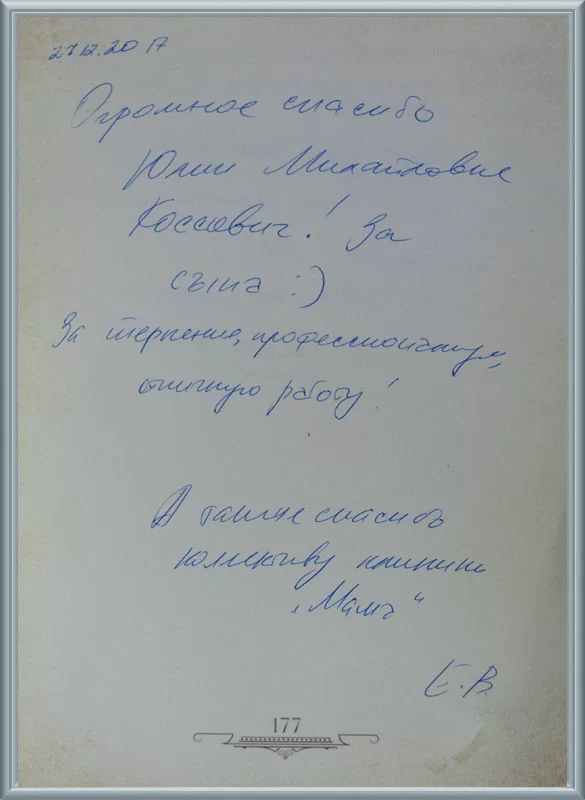 27.12.2017
Огромное спасибо
Юлии Михайловне
Коссович! За
сына :)
За терпение, профессионализм,
отличную работу!
А также спасибо
коллективу клиники
„Мама“
Е.В.
177